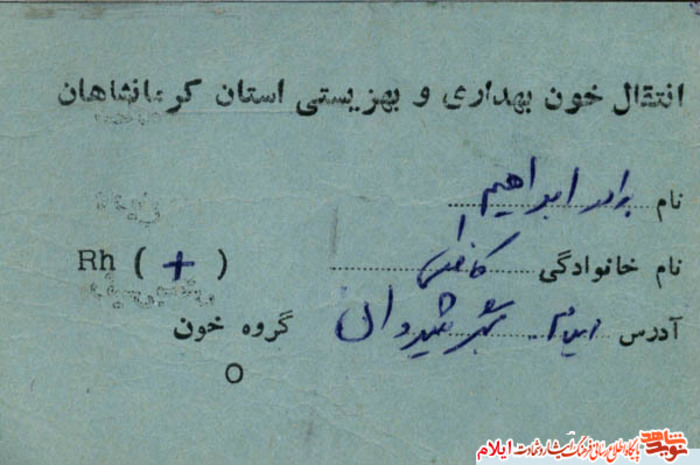 انتقال خون بهداری و بهزیستی استان کرمانشاهان
نام برادر ابراهیم
نام خانوادگی
Rh ( + )
آدرس ایلام شهر شیروان
گروه خون
O
نوید شاهد پایگاه اطلاع رسانی فرهنگ ایثار و شهادت ایلام